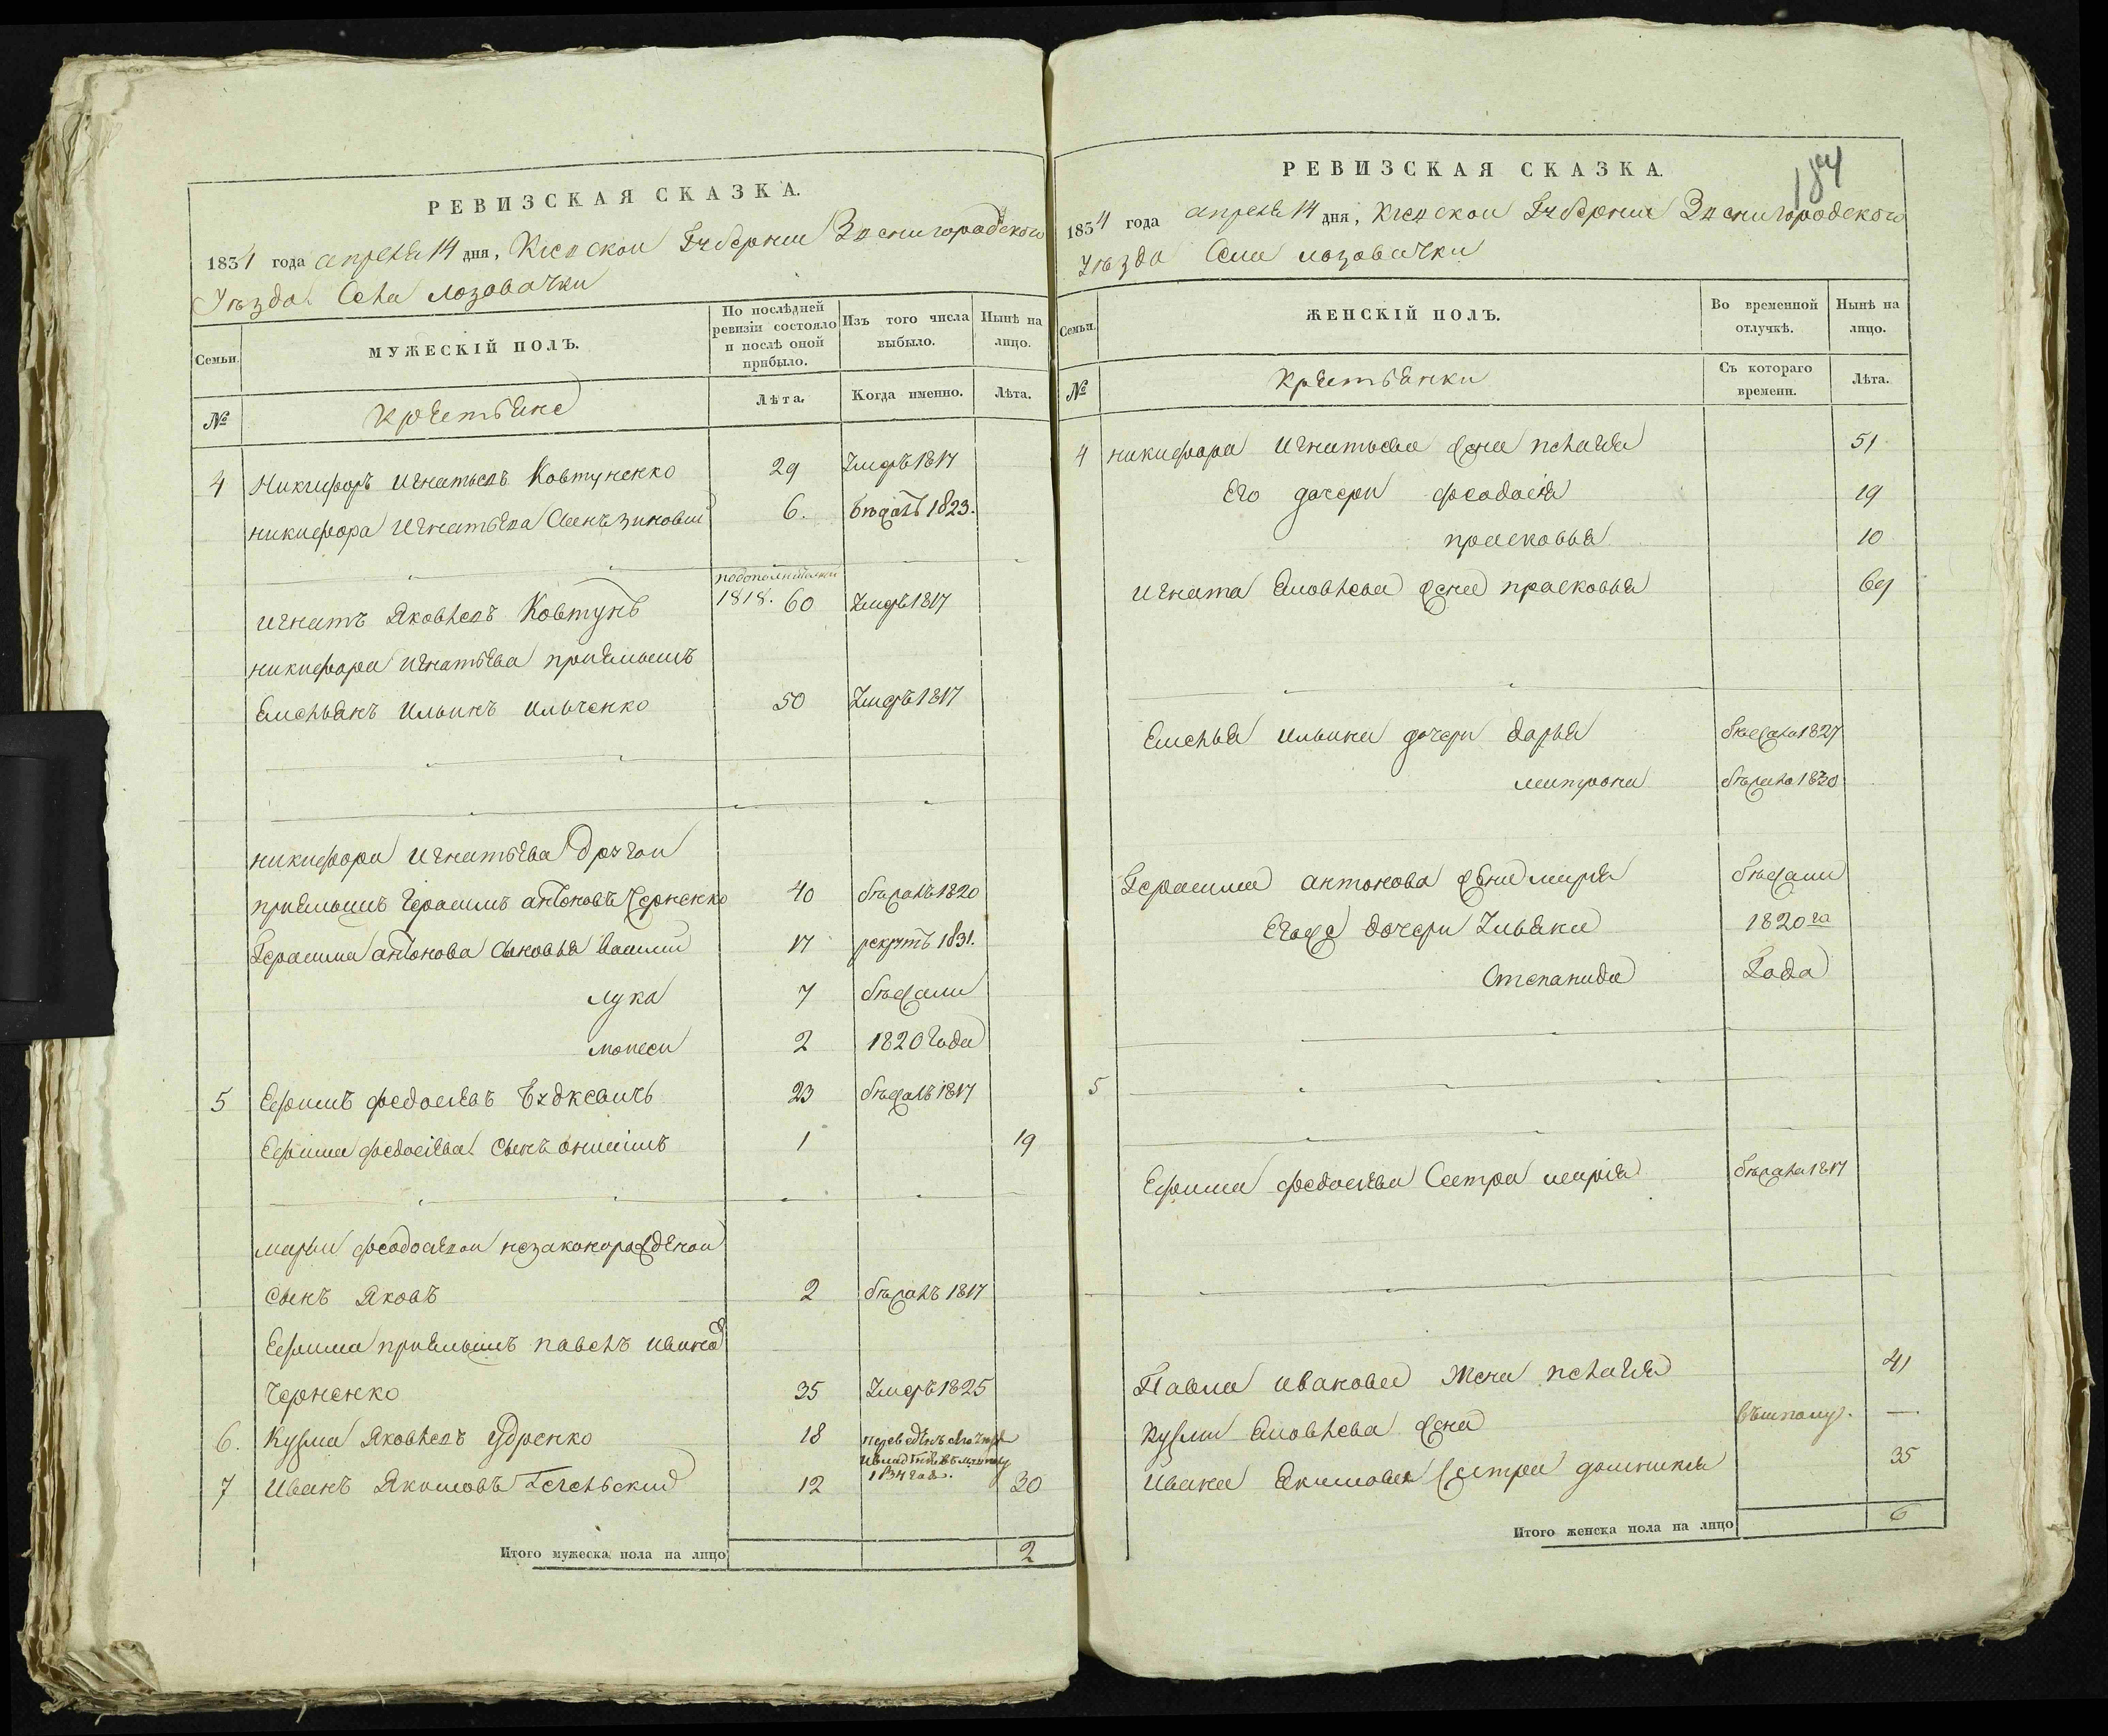 РЕВИЗСКАЯ СКАЗКА.
1834 года апреля 14 дня, Киевской Губернии Звенигородского
Уѣзда Села Лозоватки
Семьи.
МУЖЕСКІЙ ПОЛЪ.
По послѣдней ревизіи состояло и послѣ оной прибыло.
Изъ того числа выбыло.
Нынѣ на лицо.
№
Крестьяне
Лѣта.
Когда именно.
Лѣта.
4 Никифоръ Игнатьевъ Ковтуненко 29 Умеръ 1817
Никифора Игнатьева Сынъ Зиновий 6. бѣжалъ 1823.
1818. 60
Игнатъ Яковлевъ Ковтунъ Умеръ 1817
Никифора Игнатьева приемышъ
Емельянъ Ильинъ Ильченко 50 Умеръ 1817
Никифора Игнатьева другои
приемышъ Герасимъ антоновъ Черненко 40 бѣжалъ 1820
Герасима антонова Сыновья Васили 17 рекрутъ 1831.
лука 7 бѣжали
моисеи 2 1820 года
5 Ефимъ федосеевъ 23 бѣжалъ 1817
Ефима федосеева Сынъ онисимъ 1 19
марьи феодосеевои незаконорожденои
Сынъ Яковъ 2 бѣжалъ 1817
Ефима приемышъ павелъ иванов
Черненко 35 Умеръ 1825
6. Кузма Яковлевъ 18 переведенъ
1834 год.
7 Иванъ Якимовъ 12 30
Итого мужеска пола на лицо 2
184
РЕВИЗСКАЯ СКАЗКА.
1834 года апреля 14 дня, Киевскои Губернии Звенигородского
Уѣзда Села лозоватки
Семьи.
ЖЕНСКІЙ ПОЛЪ.
Во временной отлучкѣ.
Нынѣ на лицо.
№
Крестьянки
Съ котораго времени.
Лѣта.
4 никифора Игнатьева жена пелагия 51
Его дочери феодосия 19
прасковья 10
Игната Яковлева жена прасковья 69
Емельяна Ильина дочери дарья бѣжала 1827
матрона бѣжала 1820
Герасима антонова жена марья бѣжали
Егоже дочери Ульяна 1820 го
Степанида Года
5
Ефима федосеева Сестра мария бѣжала 1817
Павла иванова Жена пелагия 41
Кузмы Яковлева жена —
Ивана Якимова Сестра домникия 35
Итого женска пола на лицо 6